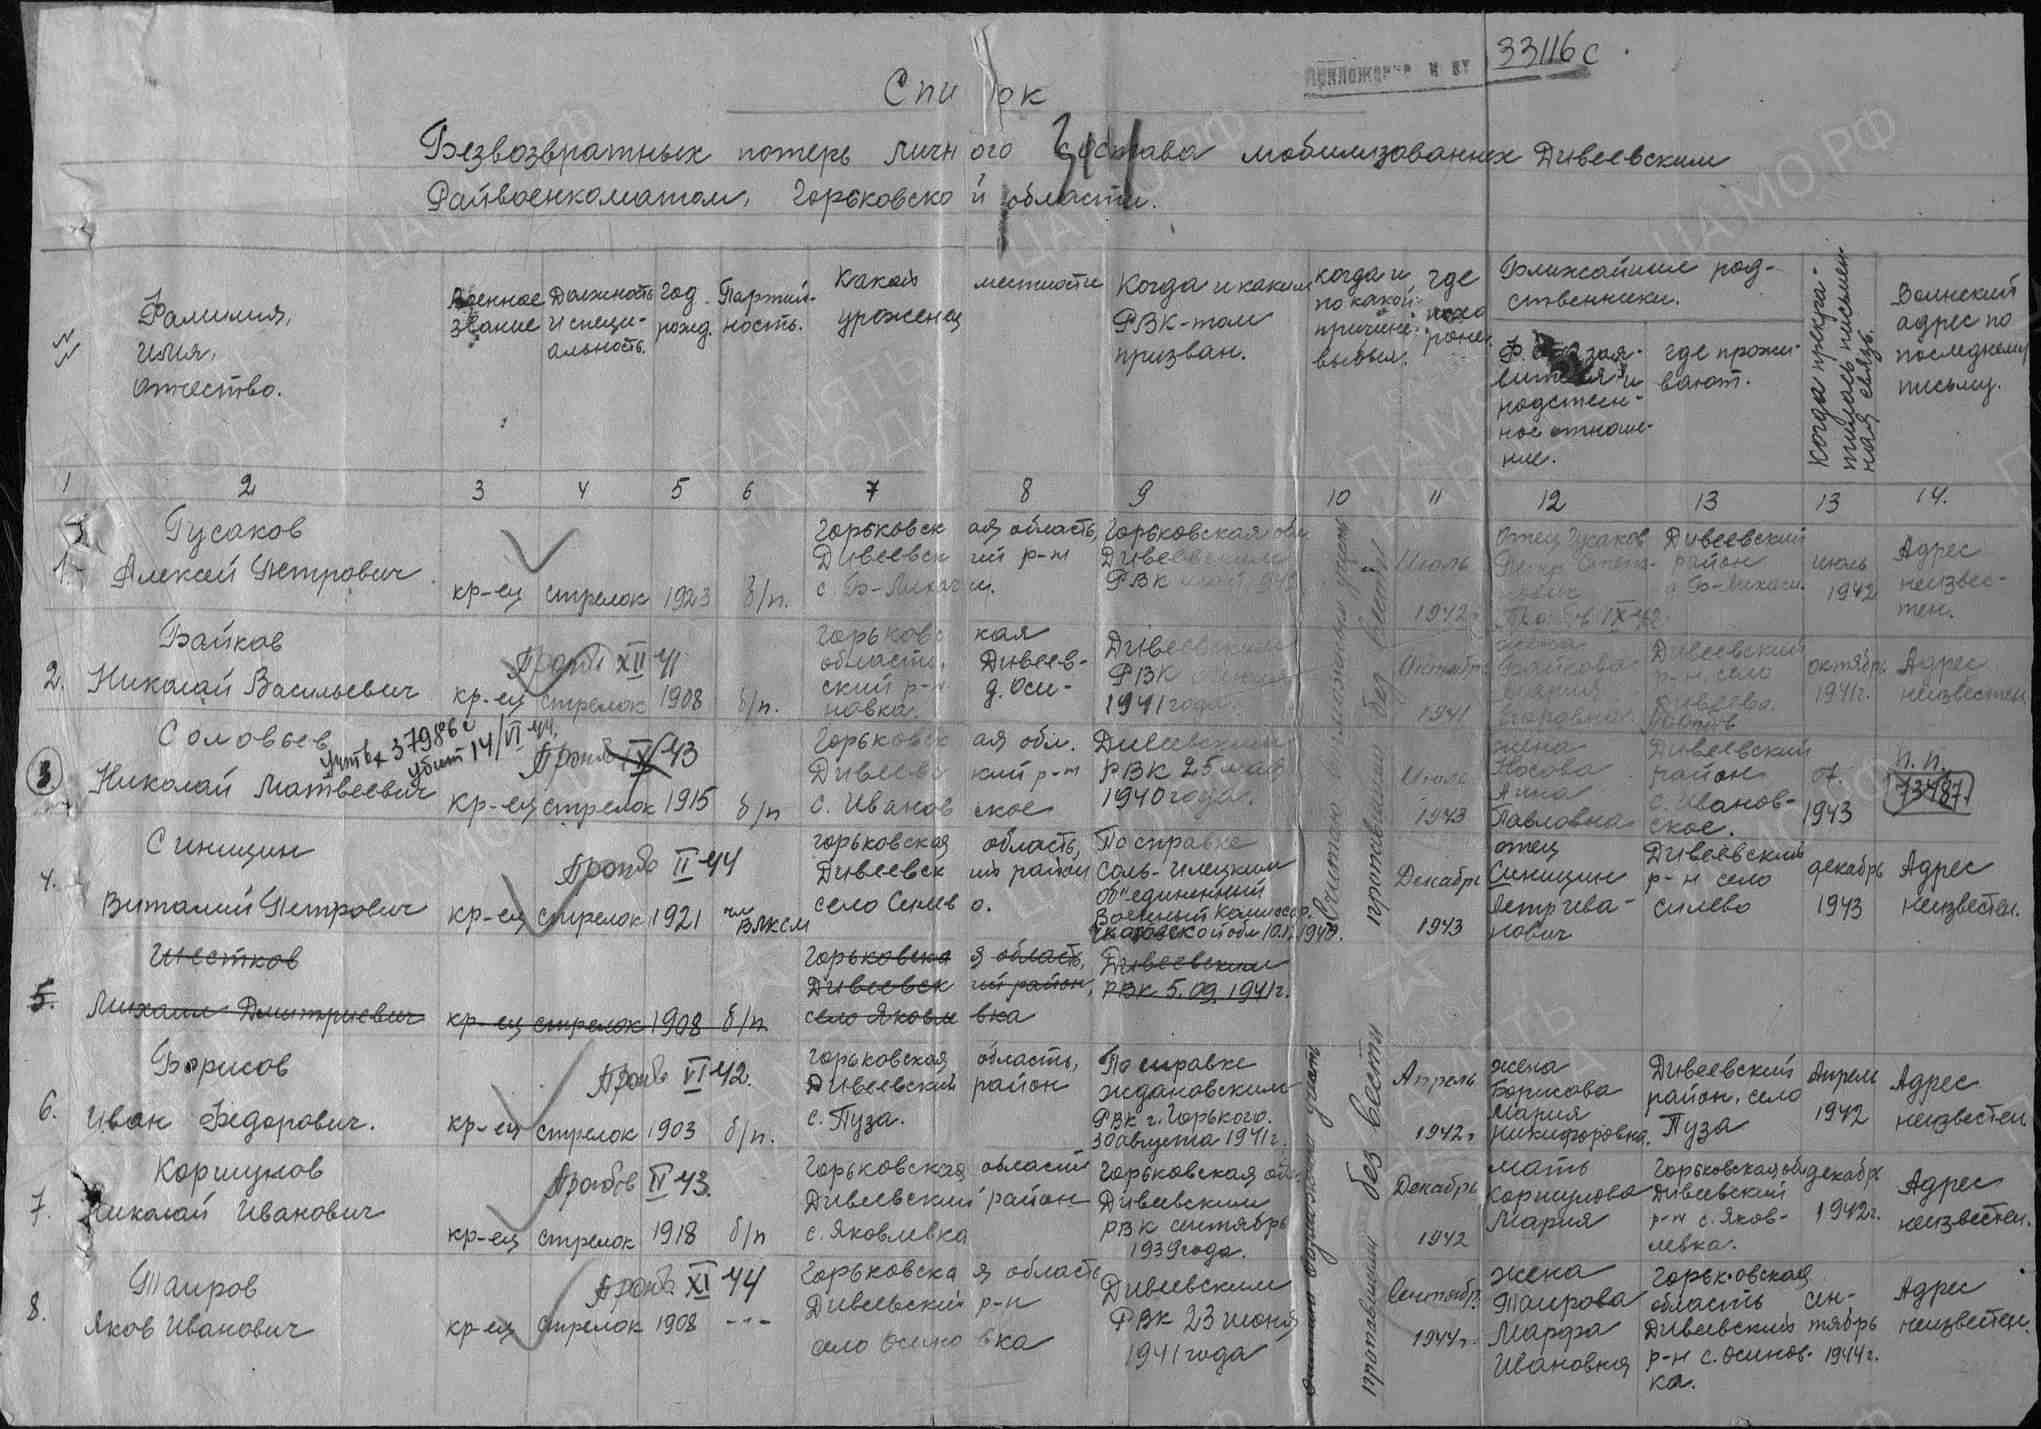 33116с
Список
Безвозвратных потерь личного состава мобилизованных Дивеевским
Райвоенкоматом, Горьковской области.
Фамилия, имя, отчество.
Военное звание
Должность и специальность.
Год рожд.
Партийность.
Какой местности уроженец
Когда и каким РВК-том призван.
Когда и по какой причине выбыл.
Где похоронен
Ближайшие родственники.
где проживают.
Когда прекратилась письменная связь.
Воинский адрес по последнему письму.
1 2 3 4 5 6 7 8 9 10 11 12 13 13 14.
считать
пропавшим без вести
1. Гусаков
Алексей Петрович
кр-ец стрелок 1923 б/п.
Горьковская область,
Дивеевский р-н
Горьковская обл
Дивеевским
РВК
Июль
1942г
отец Гусаков
Петр
Дивеевский
район
июль
1942
Адрес
неизвес-
тен.
2. Байков
Николай Васильевич
XII 41
кр-ец стрелок 1908 б/п.
Горьковская
область, Дивеев-
ский р-н д. Оси-
новка.
Дивеевским
РВК
1941 года.
Октябрь
1941
жена
Байкова
Мария
Егоровна
Дивеевский
р-н, село
Дивеево.
октябрь
1941г.
Адрес
неизвестен
3. Соловьев
Николай Матвеевич
37986с
убит 14/VI 44.
43
кр-ец стрелок 1915 б/п
Горьковская обл.
Дивеевский р-н
с. Ивановское
Дивеевским
РВК 25 мая
1940 года.
Июль
1943
жена
Носова
Анна
Павловна
Дивеевский
район
с. Иванов-
ское.
07.
1943
п.п.
73487.
4. Синицин
Виталий Петрович
II 44
кр-ец стрелок 1921 чл ВЛКСМ
Горьковская область,
Дивеевский район
село Силево.
По справке
Соль-Илецким
об"единенный
Военный комиссар.
Декабрь
1943
отец
Синицин
Петр Ива-
нович
Дивеевский
р-н село
Силево
декабрь
1943
Адрес
неизвестен.
5. Шестков
Михаил Дмитриевич
кр-ец стрелок 1908 б/п
Горьковская область,
Дивеевский район,
село Яковлевка
Дивеевским
РВК 5.09.1941г.
6. Борисов
Иван Федорович.
VI 42.
кр-ец стрелок 1903 б/п.
Горьковская область,
Дивеевский район
с. Пуза.
По справке
Ждановским
РВК г. Горького.
30 августа 1941г.
Апрель
1942г
жена
Борисова
Мария
Никифоровна.
Дивеевский
район, село
Пуза
Апрель
1942
Адрес
неизвестен
7. Коршунов
Николай Иванович
43.
кр-ец стрелок 1918 б/п
Горьковская область
Дивеевский район
с. Яковлевка
Горьковская обл
Дивеевским
РВК сентябрь
1939 года.
Декабрь
1942
мать
Коршунова
Мария
Горьковская обл
Дивеевский
р-н с. Яков-
левка.
декабрь
1942г.
Адрес
неизвестен.
8. Таиров
Яков Иванович
XI 44
кр-ец стрелок 1908 ---
Горьковская область
Дивеевский р-н
село Осиновка
Дивеевским
РВК 23 июня
1941 года
Сентябрь
1944г.
жена
Таирова
Марфа
Ивановна
Горьковская
область
Дивеевский
р-н с. Осинов-
ка.
сен-
тябрь
1944г.
Адрес
неизвестен.